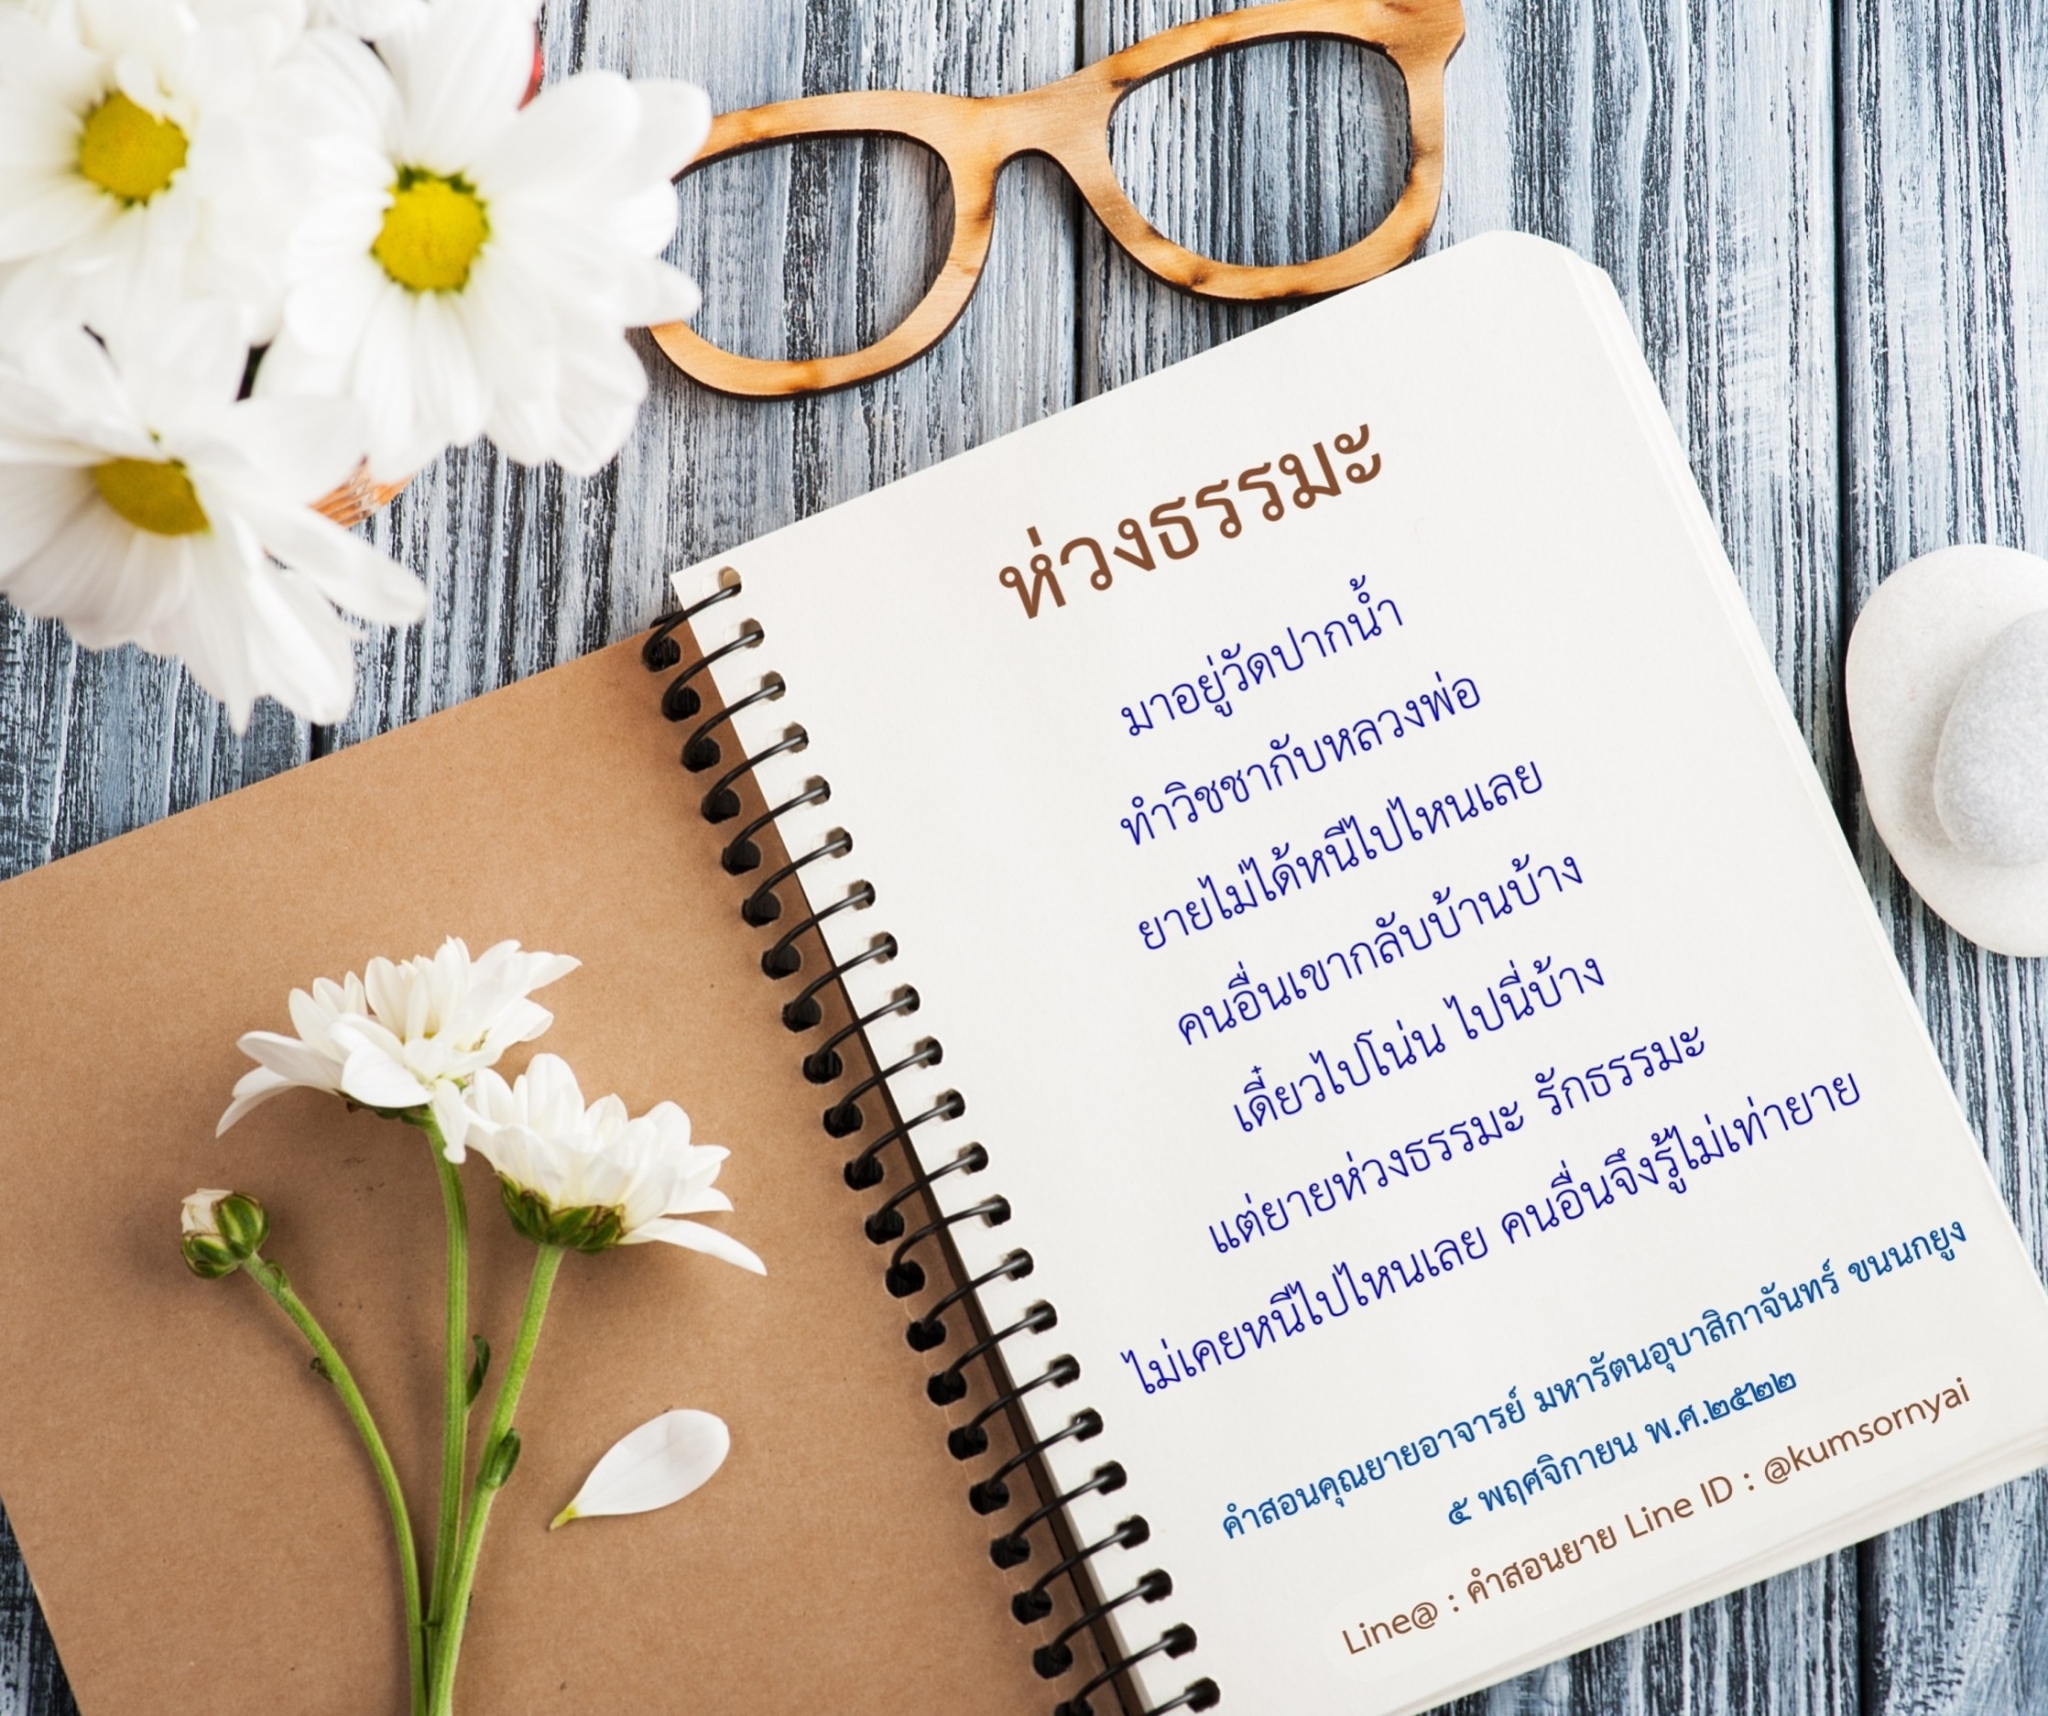 ห่วงธรรมะ
มาอยู่วัดปากน้ำ
ทำวิชชากับหลวงพ่อ
ยายไม่ได้หนีไปไหนเลย
คนอื่นเขากลับบ้านบ้าง
เดี๋ยวไปโน่น ไปนี่บ้าง
แต่ยายห่วงธรรมะ รักธรรมะ
ไม่เคยหนีไปไหนเลย คนอื่นจึงรู้ไม่เท่ายาย
คำสอนคุณยายอาจารย์ มหารัตนอุบาสิกาจันทร์ ขนนกยูง
๕ พฤศจิกายน พ.ศ.๒๕๒๒
Line@ : คำสอนยาย Line ID : @kumsornyai